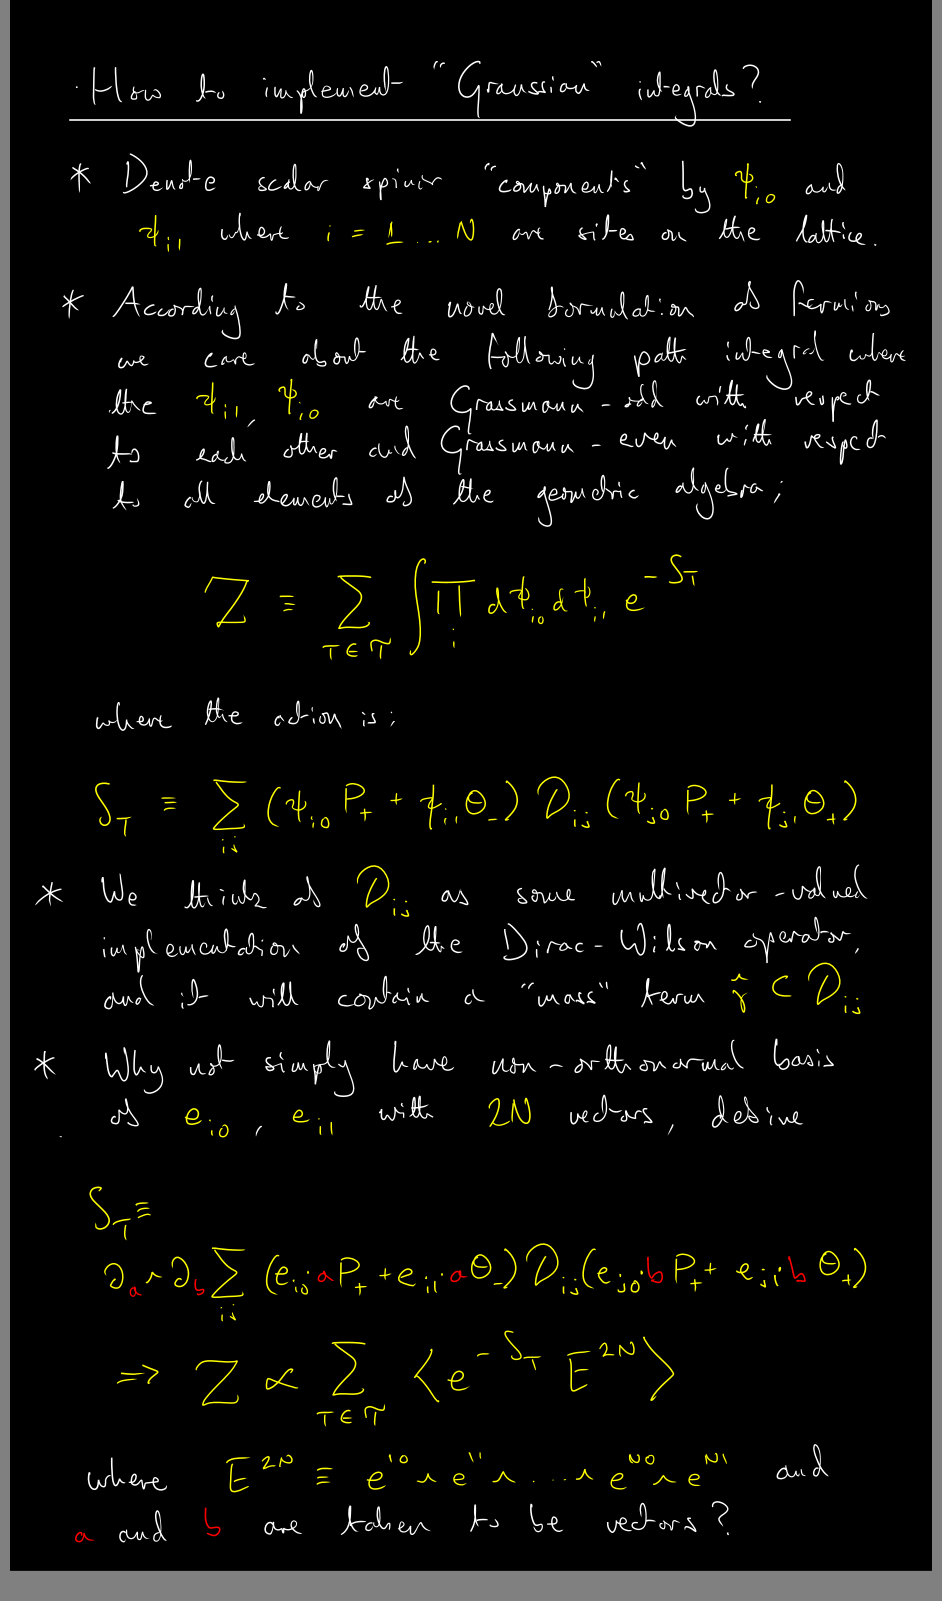 How to implement “Graussian” integrals?
* Denote scalar spinor “components” by ψ_{i0} and
ψ_{i1} where i = 1 ... N are sites on the lattice.
* According to the novel formulation of fermions
we care about the following path integral where
the ψ_{i1}, ψ_{i0} are Grassmann-odd with respect
to each other and Grassmann-even with respect
to all elements of the geometric algebra;
Z ≡ ∑_{T∈𝒯} ∫ ∏_i dψ_{i0} dψ_{i1} e^{-S_T}
where the action is;
S_T ≡ ∑_{ij} (ψ_{i0} P_+ + ψ_{i1} Θ_-) D_{ij} (ψ_{j0} P_+ + ψ_{j1} Θ_+)
* We think of D_{ij} as some multivector-valued
implementation of the Dirac-Wilson operator,
and it will contain a “mass” term γ̂ ⊂ D_{ij}
* Why not simply have non-orthonormal basis
of e_{i0}, e_{i1} with 2N vectors, define
S_T ≡
∂_a ∧ ∂_b ∑_{ij} (e_{i0}·a P_+ + e_{i1}·a Θ_-) D_{ij} (e_{j0}·b P_+ + e_{j1}·b Θ_+)
⇒ Z ∝ ∑_{T∈𝒯} ⟨e^{-S_T} E^{2N}⟩
where E^{2N} ≡ e^{10} ∧ e^{11} ∧ ... ∧ e^{N0} ∧ e^{N1} and
a and b are taken to be vectors?